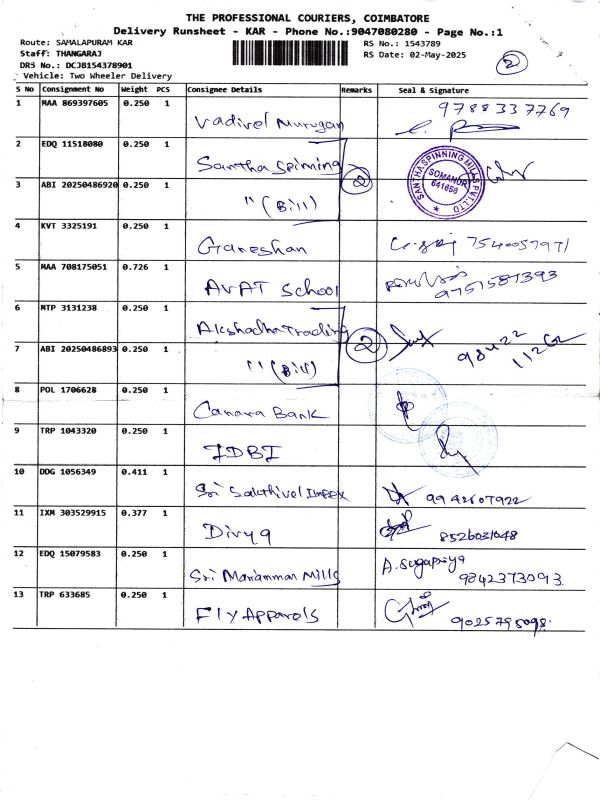 THE PROFESSIONAL COURIERS, COIMBATORE
Delivery Runsheet - KAR - Phone No.:9047080280 - Page No.:1
Route: SAMALAPURAM KAR RS No.: 1543789
Staff: THANGARAJ RS Date: 02-May-2025 2
DRS No.: DCJB154378901
Vehicle: Two Wheeler Delivery
S No Consignment No Weight PCS Consignee Details Remarks Seal & Signature
1 MAA 869397605 0.250 1 Vadivel Murugan 9788337769
2 EDQ 11518080 0.250 1 Santha Spinning
SANTHA SPINNING MILLS PVT LTD SOMANUR 641668
3 ABI 20250486920 0.250 1 " (Bill) 2
4 KVT 3325191 0.250 1 Ganeshan 7540057971
5 MAA 708175051 0.726 1 AVAT School 9751587393
6 MTP 3131238 0.250 1 Akshadha Trading
7 ABI 20250486893 0.250 1 " (Bill) 2 98422
8 POL 1706628 0.250 1 Canara Bank
9 TRP 1043320 0.250 1 IDBI
10 DDG 1056349 0.411 1 Sri Sakthivel Impex 9942607922
11 IXM 303529915 0.377 1 Divya 8526031048
12 EDQ 15079583 0.250 1 Sri Mariamman Mills A. Sugapriya 9842373093
13 TRP 633685 0.250 1 Fly Apparols 9025795098